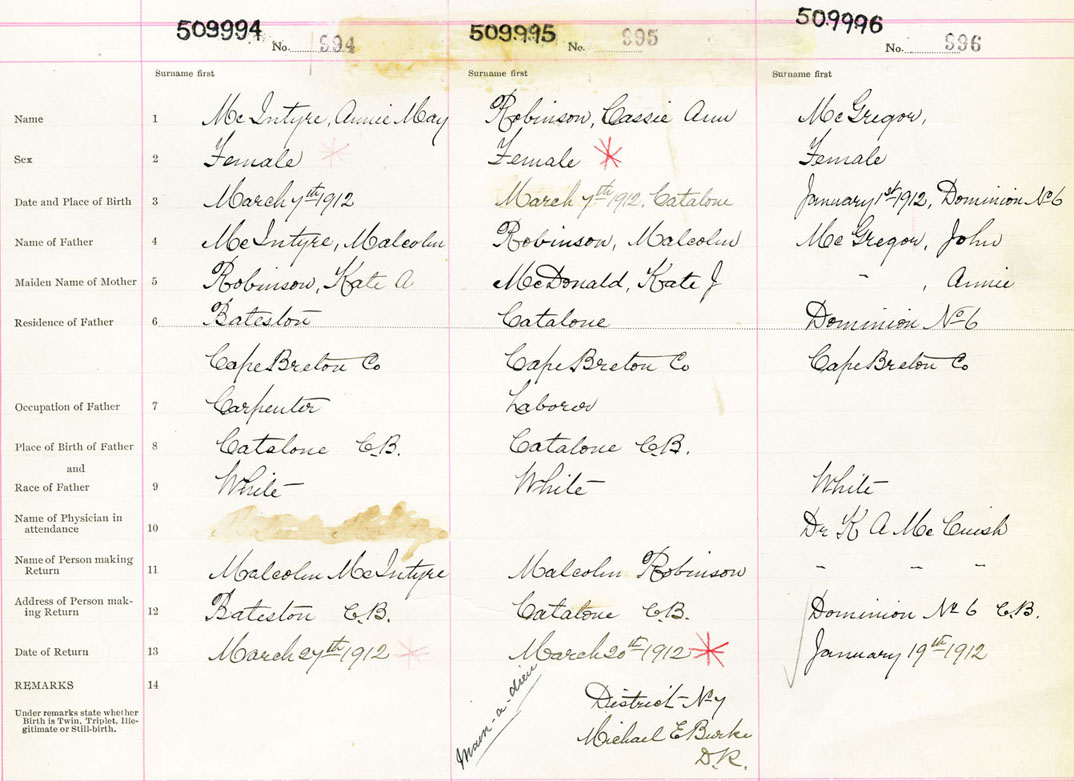 509994 509995 509996
No. 994 No. 995 No. 996
Surname first Surname first Surname first
Name 1 McIntyre, Annie May Robinson, Cassie Ann McGregor,
Sex 2 Female Female Female
Date and Place of Birth 3 March 7th 1912 March 7th 1912, Catalone January 1st 1912, Dominion No 6
Name of Father 4 McIntyre, Malcolm Robinson, Malcolm McGregor, John
Maiden Name of Mother 5 Robinson, Kate A McDonald, Kate J " , Annie
Residence of Father 6 Bateston Catalone Dominion No 6
Cape Breton Co Cape Breton Co Cape Breton Co
Occupation of Father 7 Carpenter Laborer
Place of Birth of Father 8 Catalone C.B. Catalone C.B.
and
Race of Father 9 White White White
Name of Physician in
attendance 10 Dr K A McCuish
Name of Person making
Return 11 Malcolm McIntyre Malcolm Robinson " " "
Address of Person mak-
ing Return 12 Bateston C.B. Catalone C.B. Dominion No 6 C.B.
Date of Return 13 March 27th 1912 March 20th 1912 January 19th 1912
REMARKS 14
Under remarks state whether
Birth is Twin, Triplet, Ille-
gitimate or Still-birth.
Main-a-dieu
District No 7
Michael E Burke
D.R.